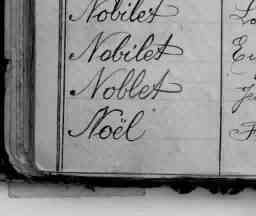 Nobilet
Nobilet
Noblet
Noël